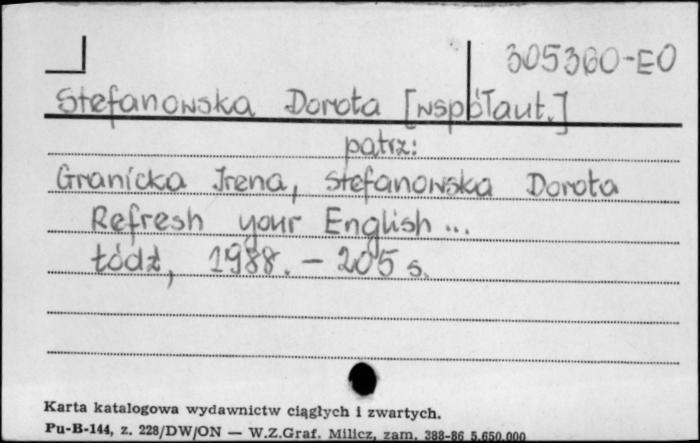 305360-EO
Stefanowska Dorota [współaut.]
patrz:
Granicka Irena, Stefanowska Dorota
Refresh your English...
Łódź, 1988. – 205 s.
Karta katalogowa wydawnictw ciągłych i zwartych.
Pu-B-144, z. 228/DW/ON — W.Z.Graf. Milicz, zam. 388-86 5.650.000